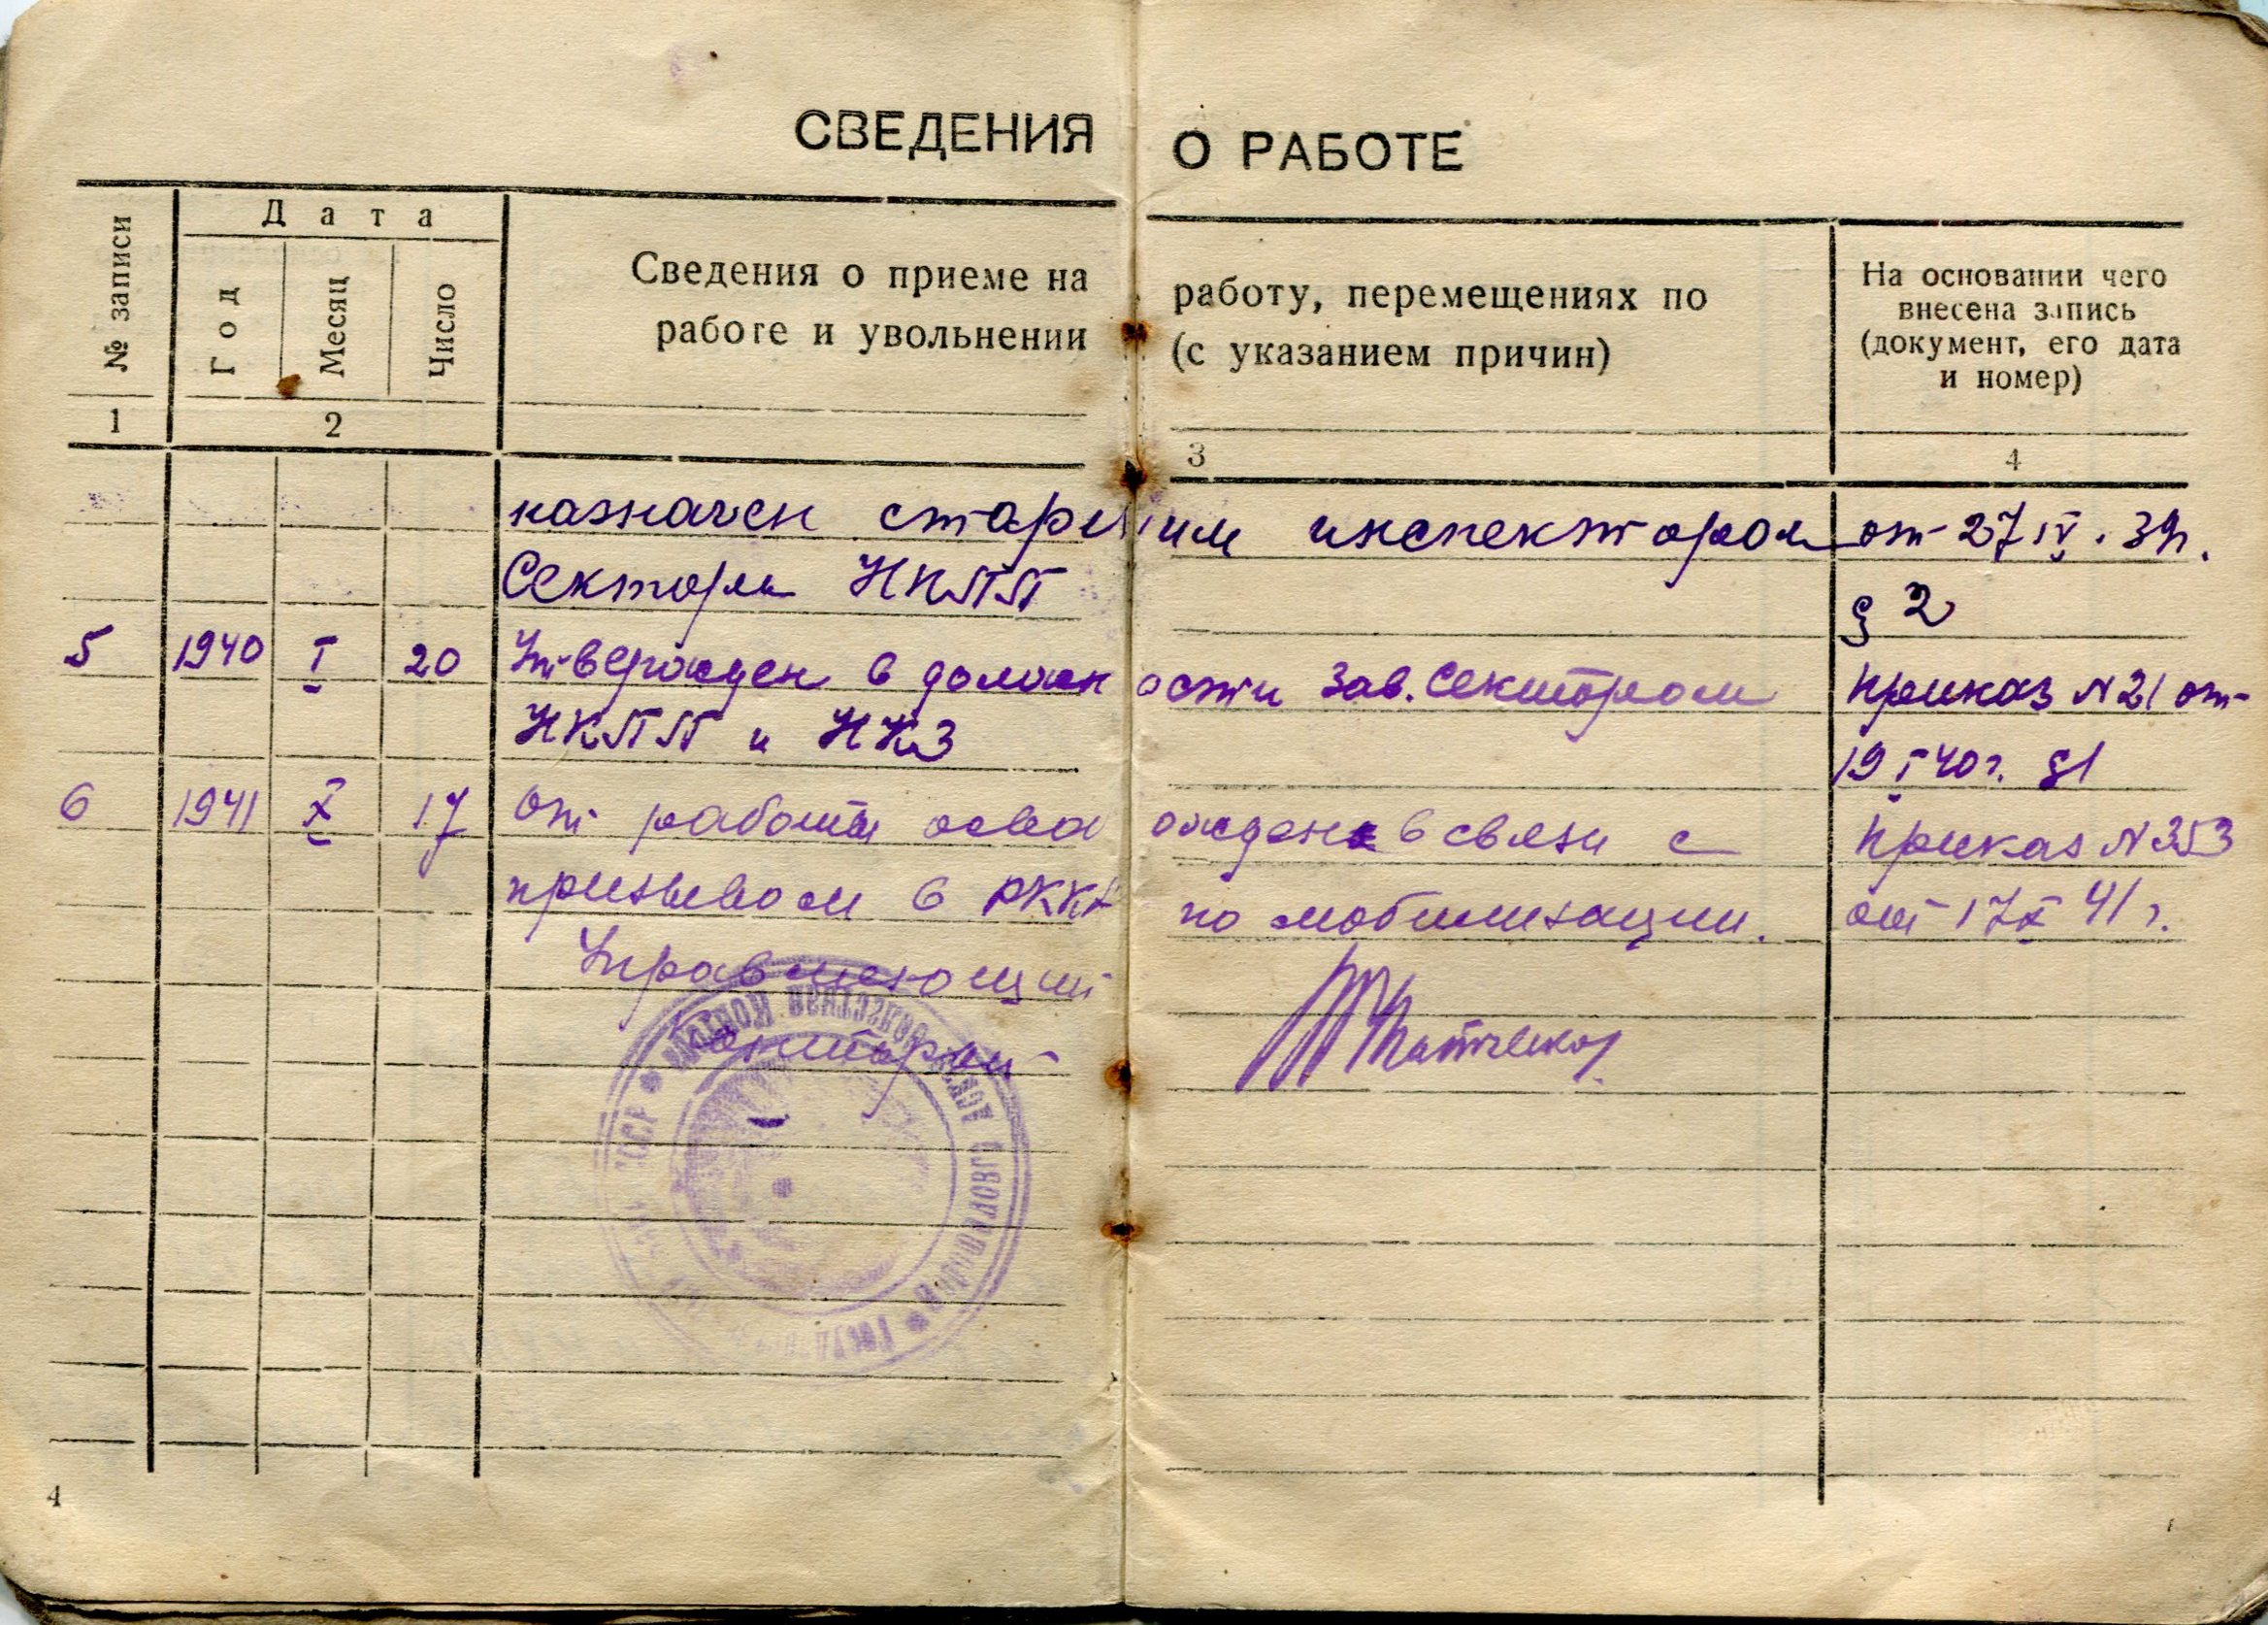 СВЕДЕНИЯ О РАБОТЕ
№ записи
Дата
Год
Месяц
Число
Сведения о приеме на работу, перемещениях по
работе и увольнении (с указанием причин)
На основании чего
внесена запись
(документ, его дата
и номер)
1 2 3 4
назначен старшим инспектором от 27 IV. 39г.
Сектора НКПП § 2
5 1940 I 20 Утвержден в должности Зав. Сектором Приказ N 21 от
НКПП и НКЗ 19 I 40г. §1
6 1941 X 17 От работы освобожден в связи с Приказ N 353
призывом в РККА по мобилизации. от 17 X 41 г.
Управляющий
Конторы
4